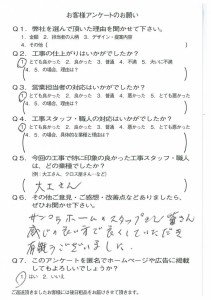 お客様アンケートのお願い
Q1. 弊社を選んで頂いた理由を聞かせて下さい。
1. 金額 2. 担当者の人柄 3. デザイン・提案内容
4. その他(
Q2. 工事の仕上がりはいかがでしたか?
1 とても良かった 2. 良かった 3. 普通 4. 不満 5. 大いに不満
4、5、の場合、理由は?
Q3. 営業担当者の対応はいかがでしたか?
1 とても良かった 2. 良かった 3. 普通 4. 悪かった 5. とても悪かった
4、5、の場合、理由は?
Q4. 工事スタッフ・職人の対応はいかがでしたか?
1 とても良かった 2. 良かった 3. 普通 4. 悪かった 5. とても悪かった
4、5、の場合、具体的な業種と理由は?
Q5. 今回の工事で特に印象の良かった工事スタッフ・職人
は、どの業種でしたか?
(例:大工さん、クロス屋さん…など)
大工さん
Q6. その他ご意見・ご感想・改善点などありましたら、
ぜひお聞かせ下さい。
ホームのスタッフさん皆さん
感じのいい方で良くしていただき
有難うございました。
Q7. このアンケートを匿名でホームページや広告に掲載
してもよろしいでしょうか?
1 はい 2. いいえ
ご返送頂きましたお客様には後日粗品をお届けさせて頂きます。